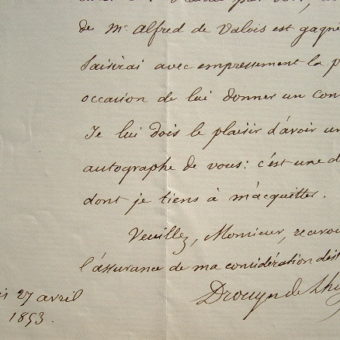 de Mr Alfred de Valois est gagné
saisirai avec empressement la p
occasion de lui donner un con
Je lui dois le plaisir d'avoir un
autographe de vous: c'est une d
dont je tiens à m'acquitter.
Veuillez, Monsieur, recevoi
l'assurance de ma considération dist
Drouyn de Lhu
is 27 avril
1853.